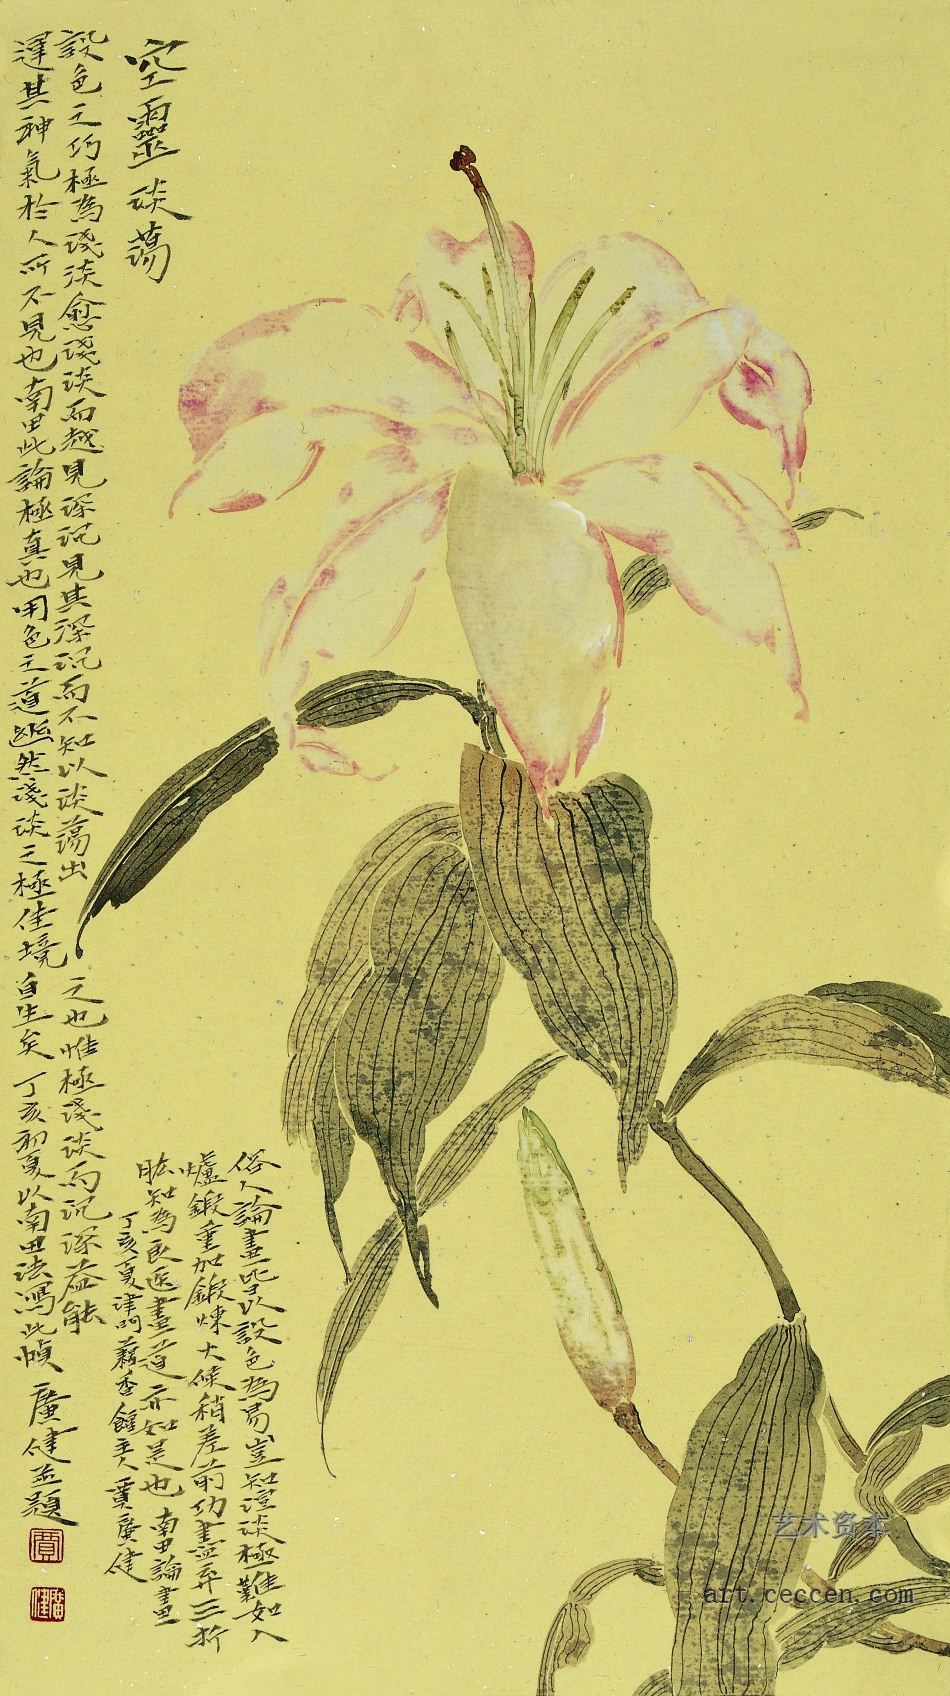 空靈淡蕩
設色之巧極為淺淡愈淺淡而越見深沉見其深沉而不知以淡蕩出
之也惟極淺淡而沉深益能
運其神氣於人所不見也南田此論極真也用色之道幽然淺淡之極佳境
自生矣丁亥初夏以南田法寫此幀廣健並題
俗人論畫皆以設色為易豈知澄淡極難如入
爐鍛重加鍛煉火候稍差前功盡棄三折
肱知為良醫畫道亦知是也南田論畫
丁亥夏津門藕香館主人賈廣健
賈
廣健
艺术资本
art.ceccen.com